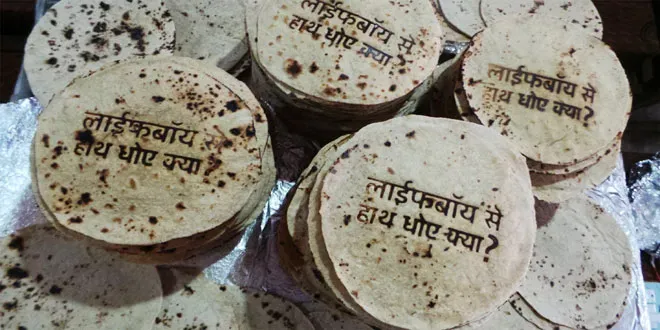 लाईफबॉय से
हाथ धोए क्या?
लाईफबॉय से
हाथ धोए क्या?
लाईफबॉय से
हाथ धोए क्या?
लाईफबॉय से
हाथ धोए क्या?